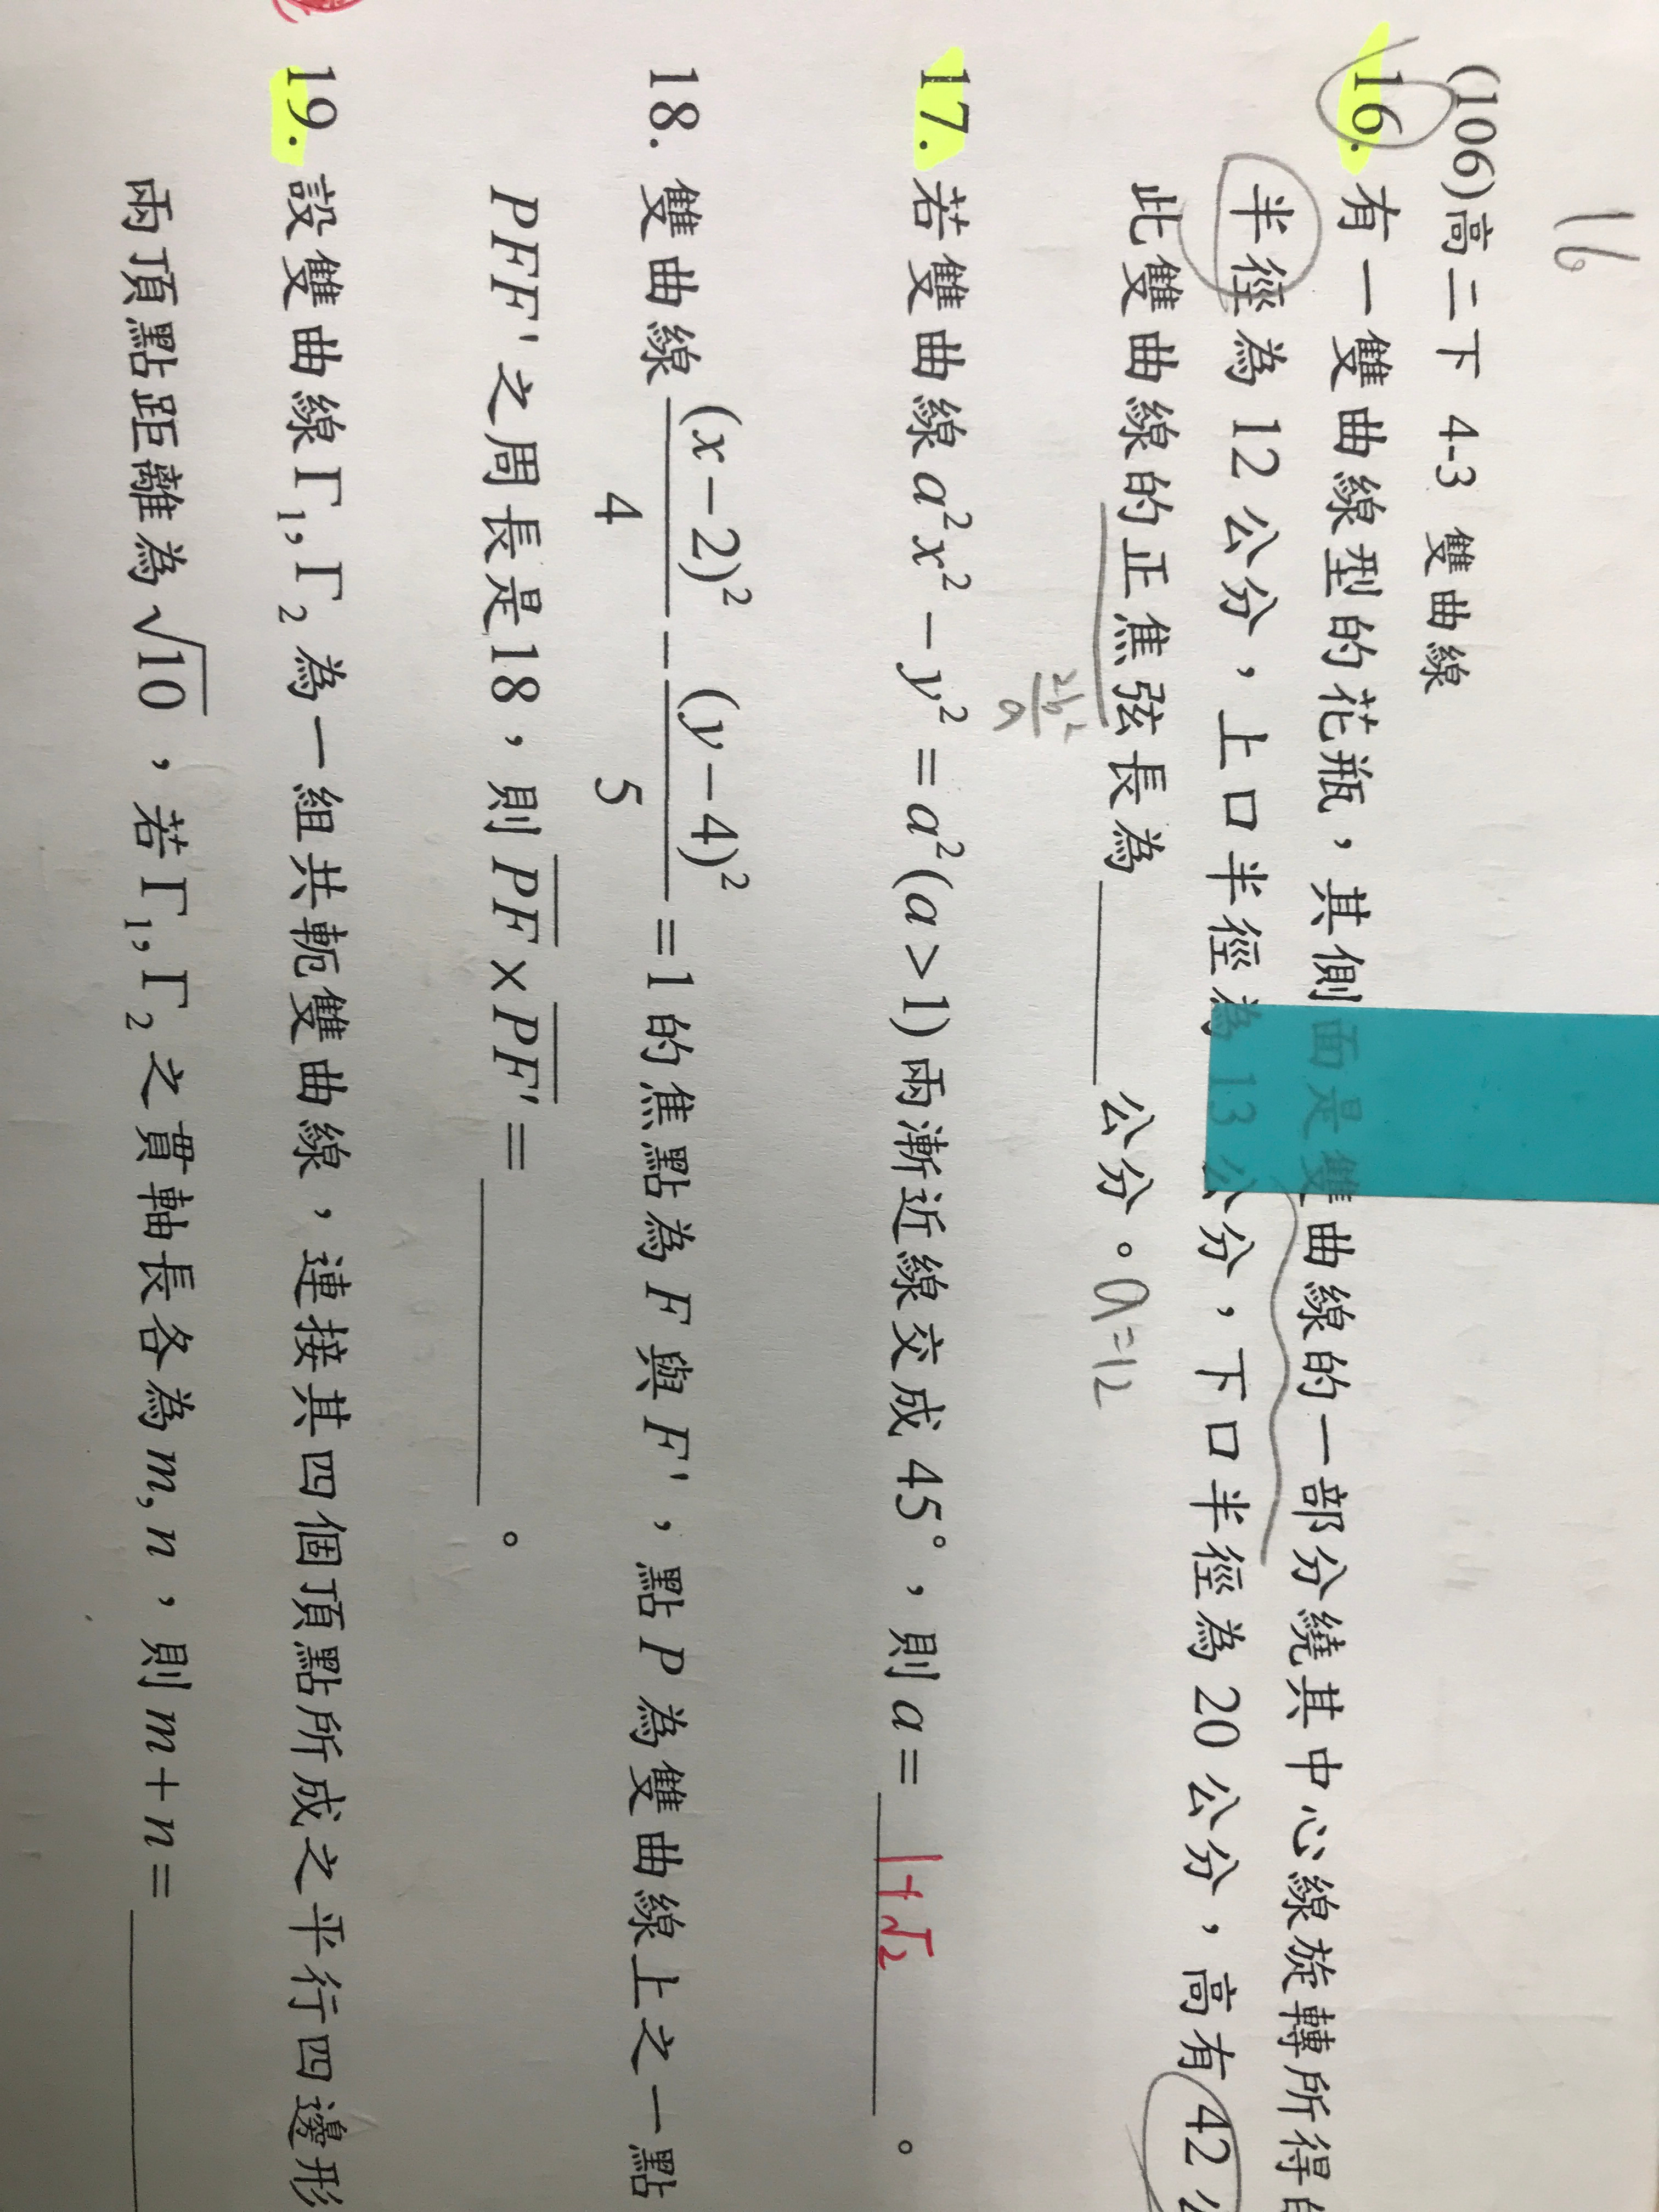 16
(106)高二下 4-3 雙曲線
16. 有一雙曲線型的花瓶,其側面是雙曲線的一部分繞其中心線旋轉所得的
半徑為 12 公分,上口半徑為 13 公分,下口半徑為 20 公分,高有 42 公
此雙曲線的正焦弦長為______公分。a=12
2b²/a
17. 若雙曲線 a²x² − y² = a²(a > 1) 兩漸近線交成 45°,則 a = 1+√2 。
18. 雙曲線 (x−2)²/4 − (y−4)²/5 = 1 的焦點為 F 與 F',點 P 為雙曲線上之一點
PFF' 之周長是18,則 PF × PF' = ______。
19. 設雙曲線 Γ₁, Γ₂ 為一組共軛雙曲線,連接其四個頂點所成之平行四邊形
兩頂點距離為 √10 ,若 Γ₁, Γ₂ 之貫軸長各為 m, n ,則 m + n = ______